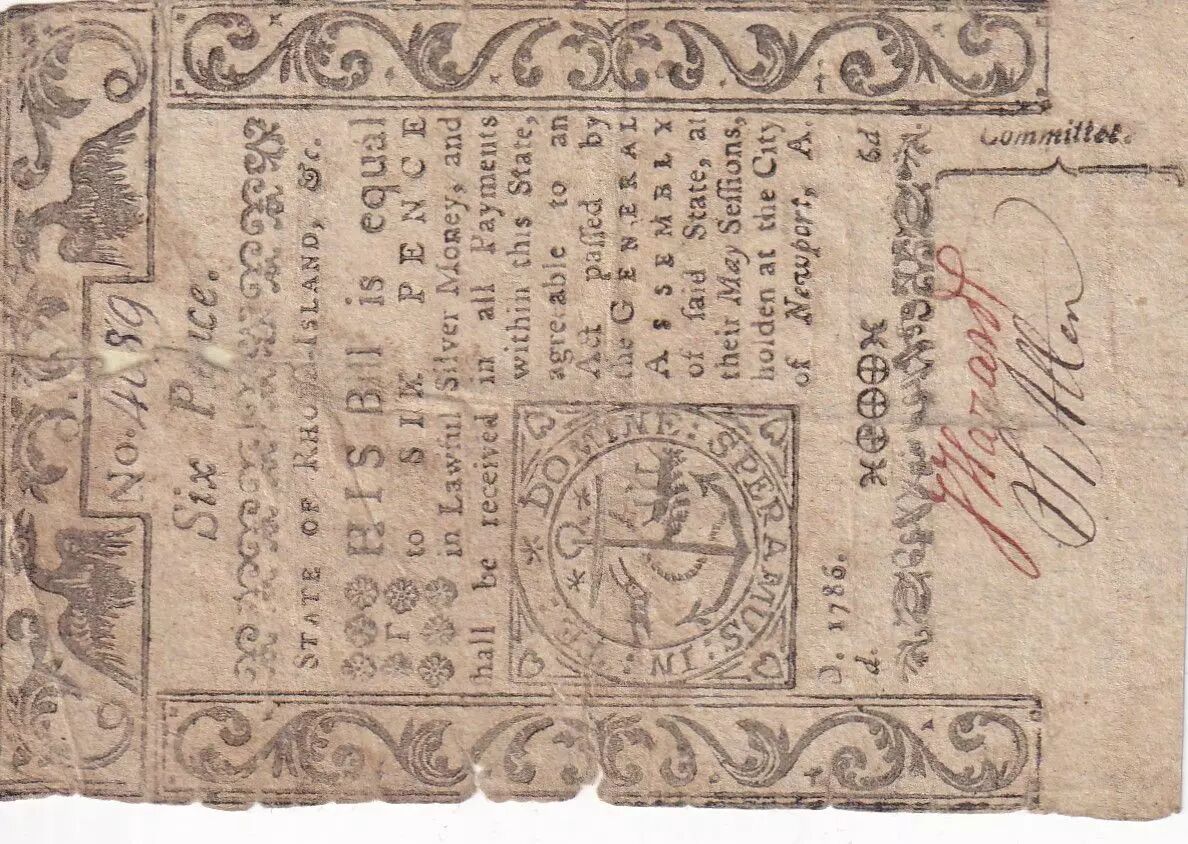 No. 4089
Six P nce.
STATE OF RHODE-ISLAND, &c.
THIS Bill is equal
to SIX PENCE
in Lawful Silver Money, and
shall be received in all Payments
within this State,
agreeable to an
Act paſſed by
the GENERAL
ASSEMBLY
of ſaid State, at
their May Seſſions,
holden at the City
of Newport, A.
D. 1786.
IN: TE: DOMINE: SPERAMUS:
d. 6d
Committee.
J Hazard